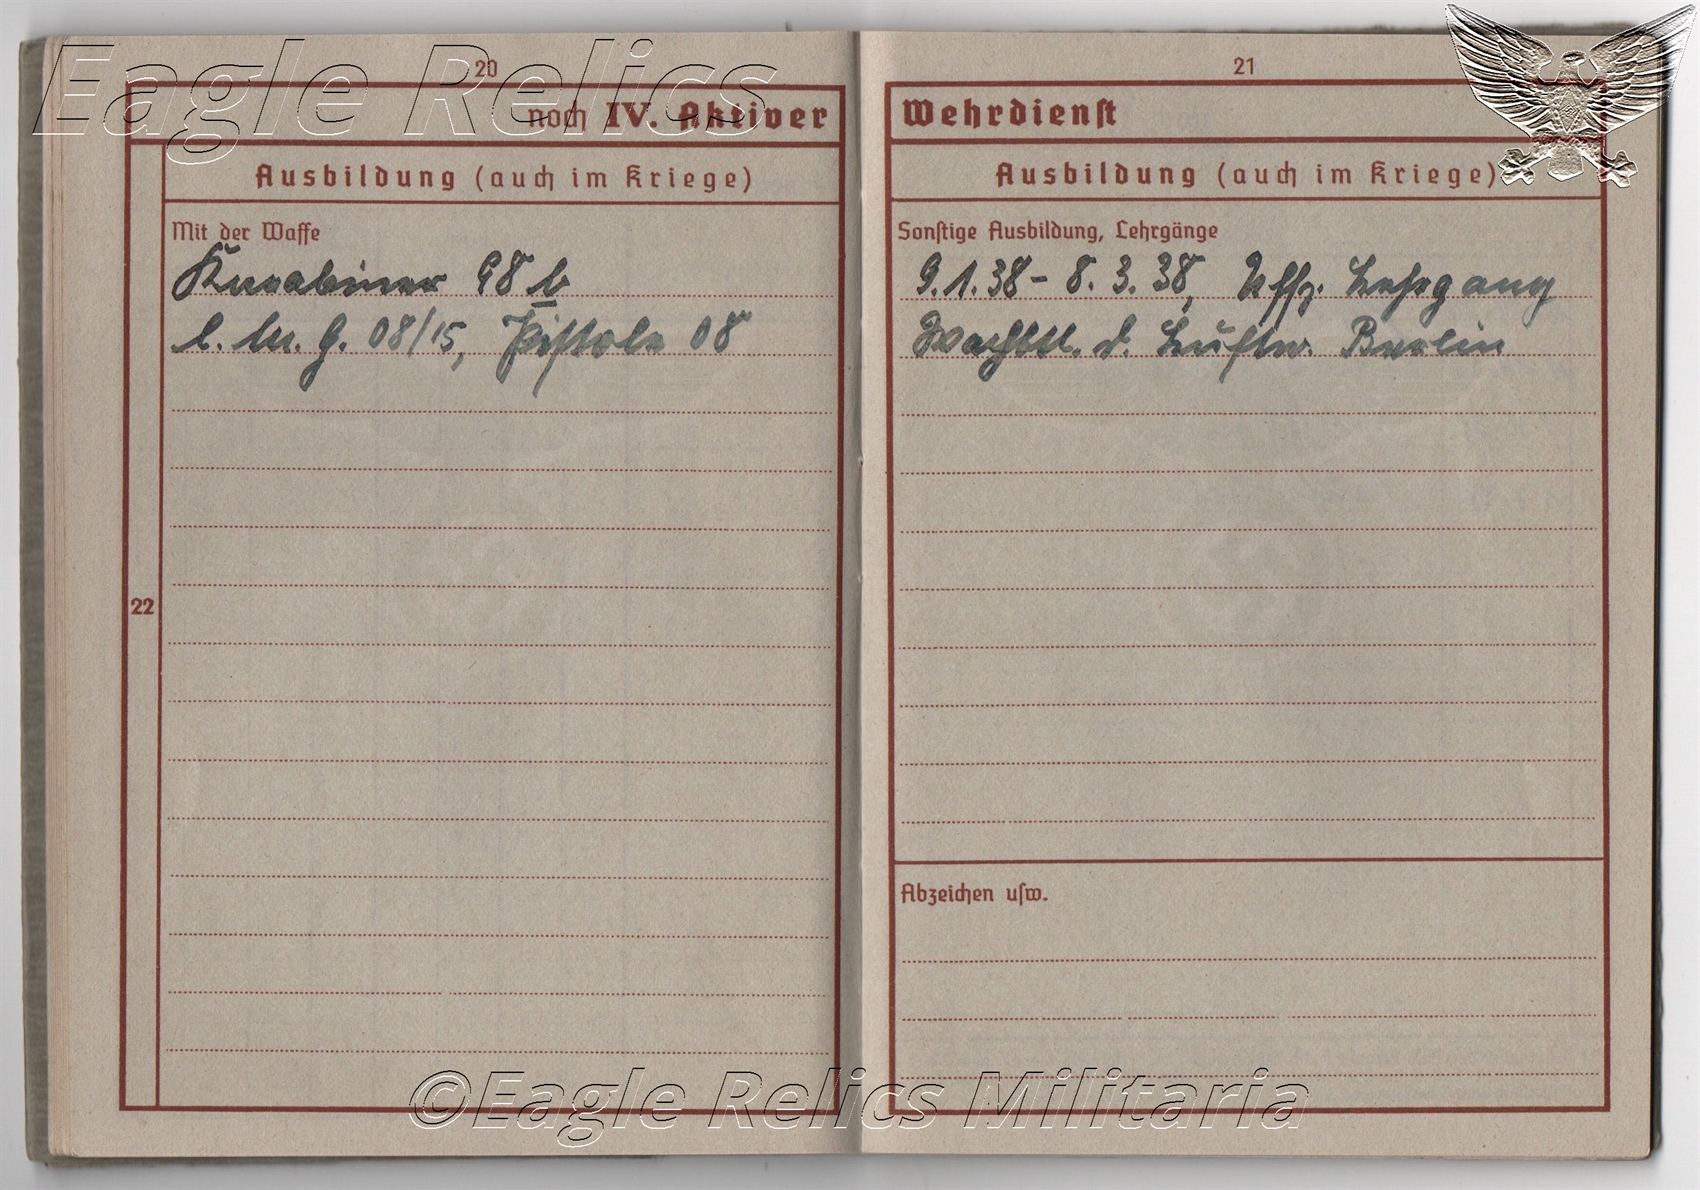 Eagle Relics
20
noch IV. Aktiver
Ausbildung (auch im Kriege)
Mit der Waffe
Karabiner 98 b
l. M. G. 08/15, Pistole 08
22
21
Wehrdienst
Ausbildung (auch im Kriege)
Sonstige Ausbildung, Lehrgänge
9.1.38 - 8.3.38, Uffz. Lehrgang
Wachbtl. d. Luftw. Berlin
Abzeichen usw.
©Eagle Relics Militaria